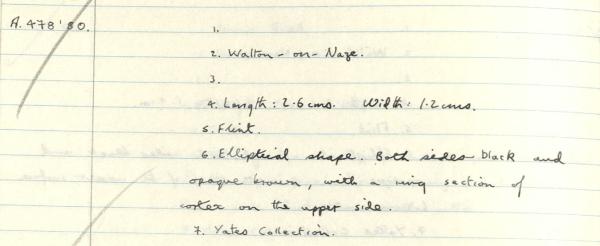 A.478'80.
1.
2. Walton-on-Naze.
3.
4. Length: 2.6 cms. Width: 1.2 cms.
5. Flint.
6. Elliptical shape. Both sides black and
opaque brown, with a ring section of
cortex on the upper side.
7. Yates Collection.